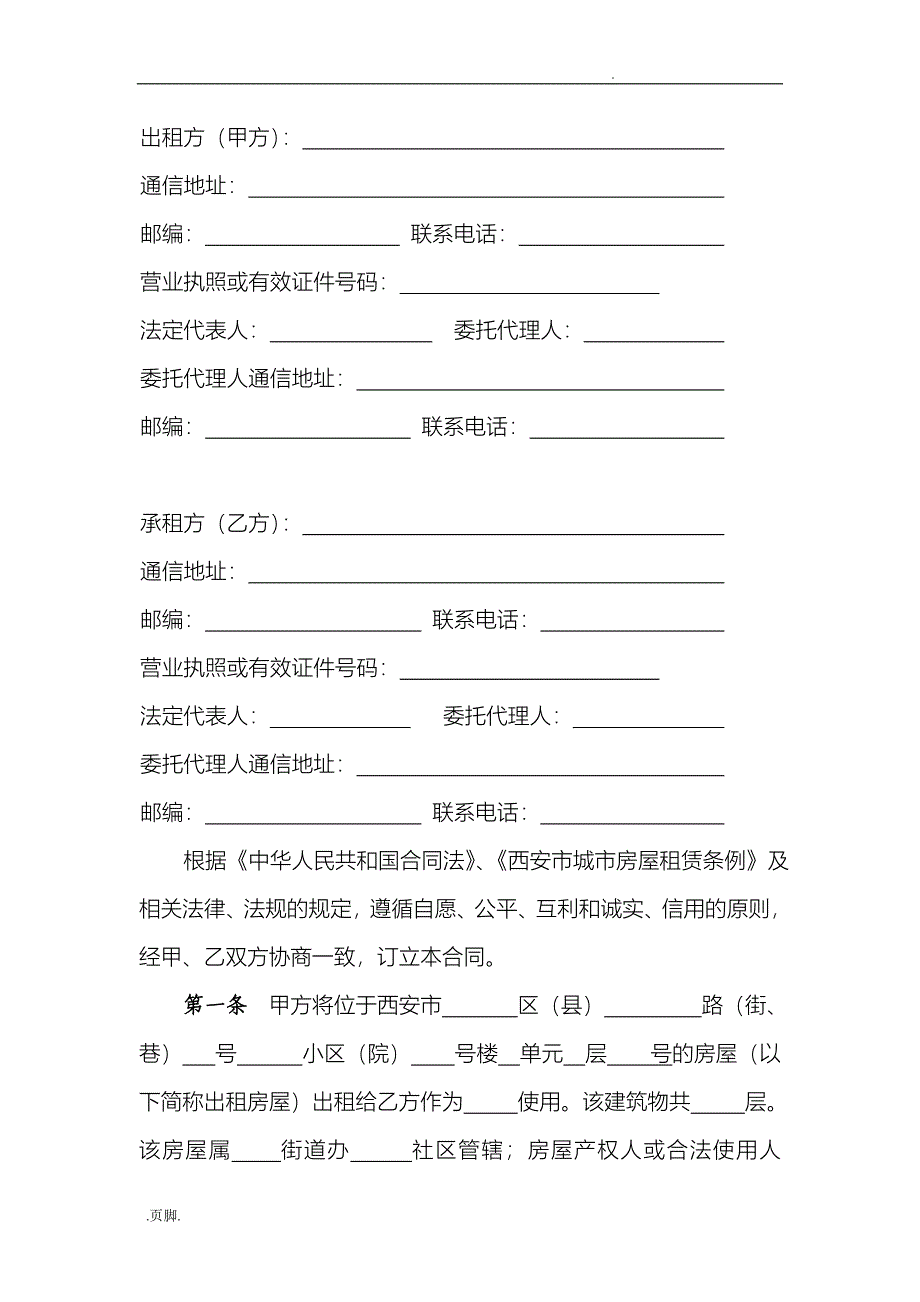 .
出租方（甲方）：________________
通信地址：________________
邮编：________ 联系电话：________
营业执照或有效证件号码：________
法定代表人：________ 委托代理人：________
委托代理人通信地址：________________
邮编：________ 联系电话：________
承租方（乙方）：________________
通信地址：________________
邮编：________ 联系电话：________
营业执照或有效证件号码：________
法定代表人：________ 委托代理人：________
委托代理人通信地址：________________
邮编：________ 联系电话：________
根据《中华人民共和国合同法》、《西安市城市房屋租赁条例》及
相关法律、法规的规定，遵循自愿、公平、互利和诚实、信用的原则，
经甲、乙双方协商一致，订立本合同。
第一条 甲方将位于西安市_______区（县）_________路（街、
巷）___号______小区（院）____号楼__单元__层____号的房屋（以
下简称出租房屋）出租给乙方作为_____使用。该建筑物共_____层。
该房屋属_____街道办______社区管辖；房屋产权人或合法使用人
.页脚.